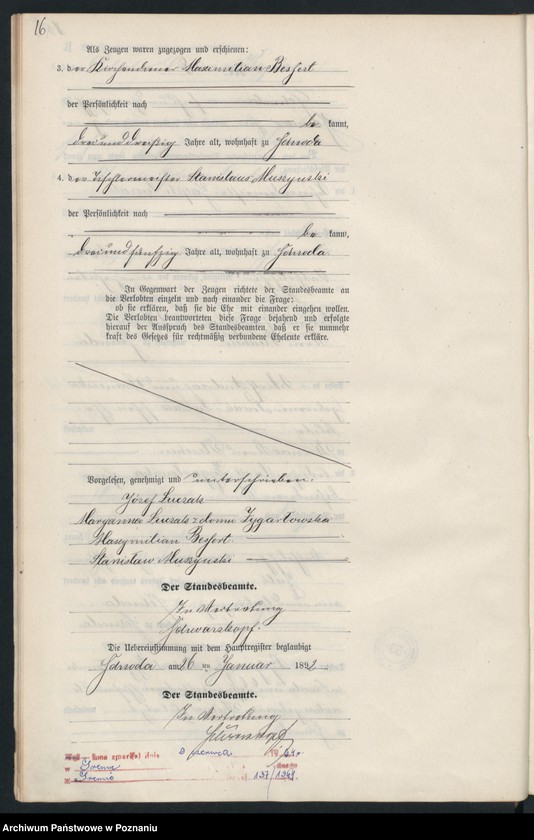 16
Als Zeugen waren zugezogen und erschienen:
3. der Kirchendiener Maximilian Besfort
der Persönlichkeit nach
be kannt,
dreiunddreißig Jahre alt, wohnhaft zu Schroda
4. der Tischlermeister Stanislaus Muszynski
der Persönlichkeit nach
be kannt,
dreiundfünfzig Jahre alt, wohnhaft zu Schroda.
In Gegenwart der Zeugen richtete der Standesbeamte an
die Verlobten einzeln und nach einander die Frage:
ob sie erklären, daß sie die Ehe mit einander eingehen wollen.
Die Verlobten beantworteten diese Frage bejahend und erfolgte
hierauf der Ausspruch des Standesbeamten, daß er sie nunmehr
kraft des Gesetzes für rechtmäßig verbundene Eheleute erkläre.
Vorgelesen, genehmigt und unterschrieben:
Józef
Maryanna z domu
Maxymilian Besfort
Stanisław Muszynski
Der Standesbeamte.
In Vertretung
Schwarzkopf.
Die Uebereinstimmung mit dem Hauptregister beglaubigt
Schroda am 26 ten Januar 1892.
Der Standesbeamte.
In Vertretung
Schwarzkopf
żona zmarł(a) dnia 9 czerwca 19
w Śremie
Śremie 137/1949
Archiwum Państwowe w Poznaniu